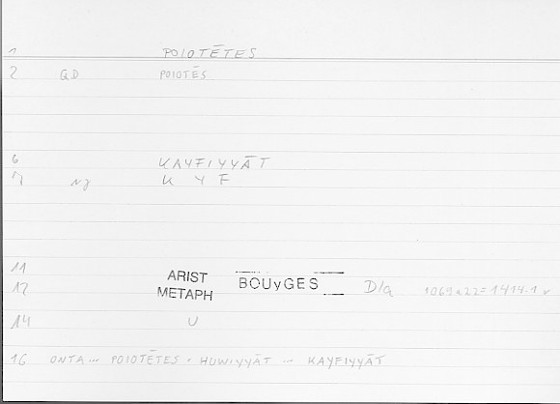 1 POIOTĒTES
2 QD POIOTĒS
6 KAYFIYYĀT
7 NJ K Y F
11
12 ARIST METAPH BOUyGES D/a 1069a22=1414.1 v
14 U
16 ONTA ... POIOTĒTES . HUWIYYĀT ... KAYFIYYĀT